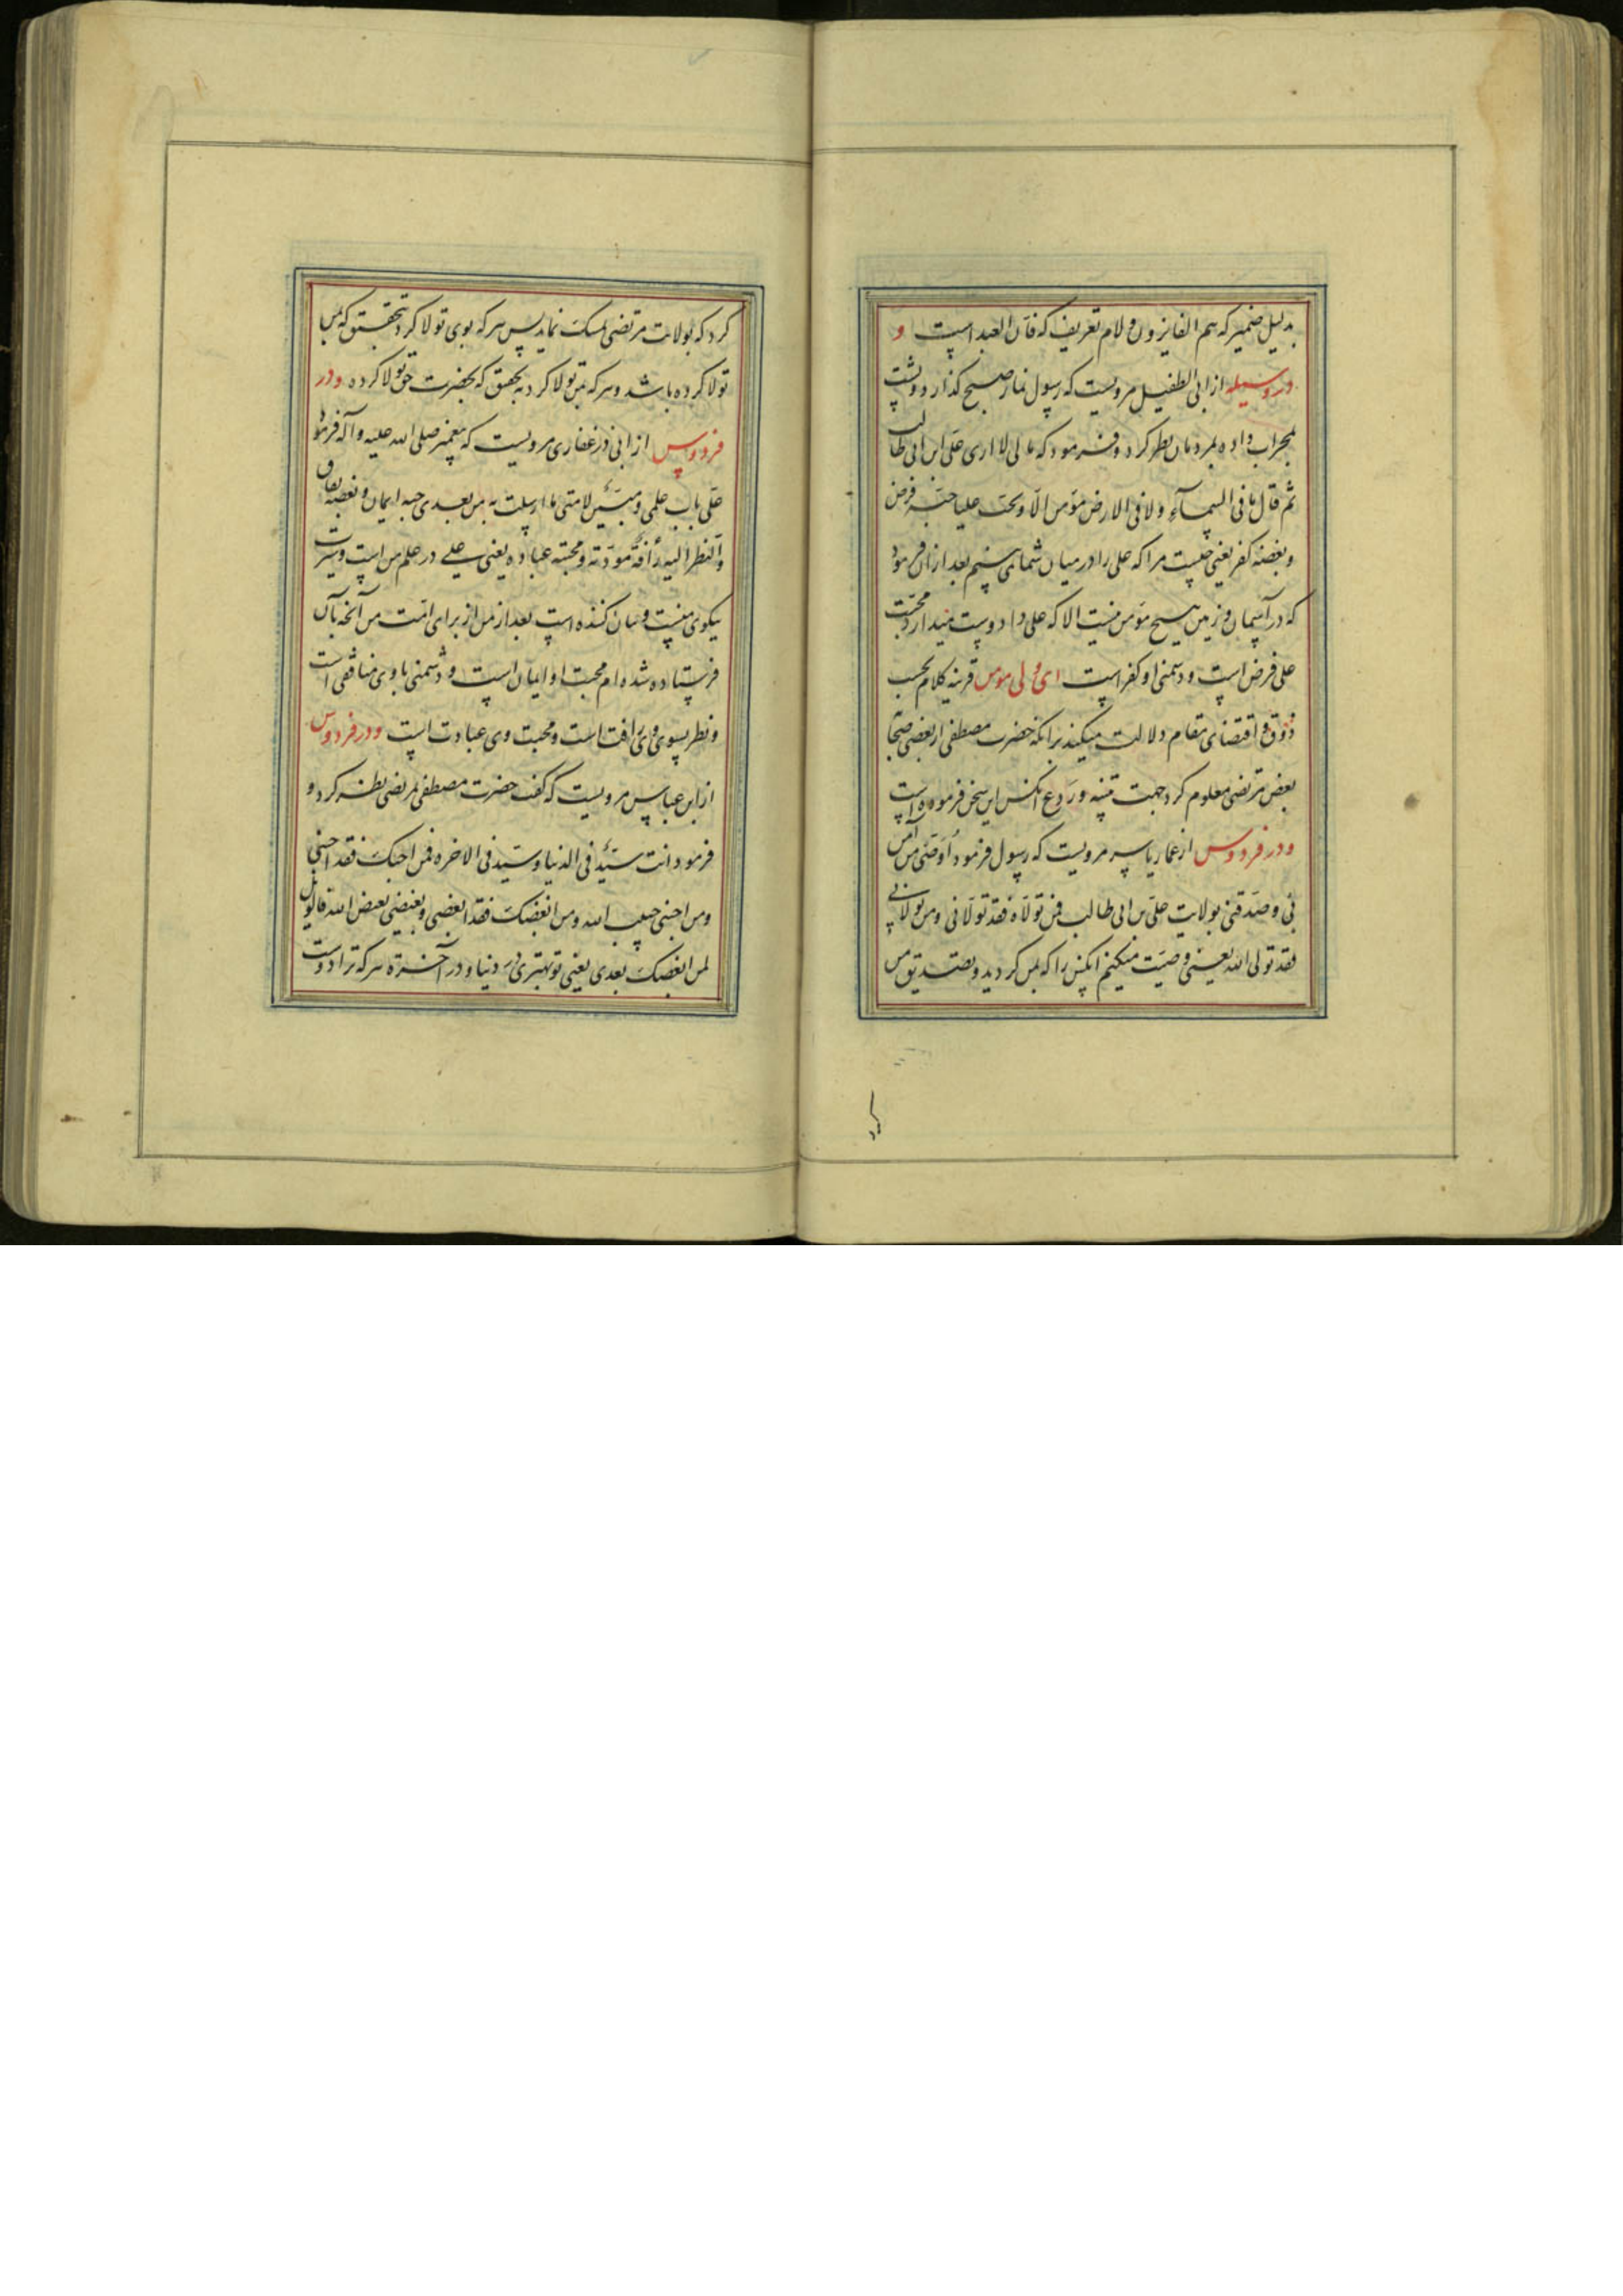 بدلیل ضمیر که هم الفایزون و لام تعریف که فان العبد است و
در وسیله از ابی الطفیل مرویست که رسول نماز صبح گذارد و پشت
بمحراب داده بمردمان نظر کرد و فرمود که مالی لا اری علی ابن ابی طالب
ثم قال ما فی السمآء ولا فی الارض مؤمن الّا و یحب علیا حبّه فرض
و بغضه کفر یعنی چیست مرا که علی را در میان شما نمی بینم بعد از آن فرمود
که در آسمان و زمین هیچ مؤمن نیست الا که علی را دوست میدارد محبّت
علی فرض است و دشمنی او کفر است ای ولی مومن قرینه کلام بحسب
ذوق و اقتضای مقام دلالت میکند برانکه حضرت مصطفی از بعضی صحابه
بغض مرتضی معلوم کرد جهت تنبیه و ردع انکس این سخن فرموده است
و در فردوس از عمار یاسر مرویست که رسول فرمود اُوصی من آمن
بی و صدّقنی بولایت علی بن ابی طالب فمن تولّاه فقد تولّانی و من تولانی
فقد تولی الله یعنی وصیت میکنم انکس را که بمن گردید و تصدیق من
کرد که بولایت مرتضی تمسک نماید پس هر که بوی تولا کرد بتحقیق که بمن
تولا کرده باشد و هر که بمن تولا کرد بتحقیق که بحضرت حق تولا کرده و در
فردوس از ابی ذر غفاری مرویست که پیغمبر صلی الله علیه و آله فرمود
علی باب علمی و مبیّن لامتی ما ارسلت به من بعدی حبه ایمان و بغضه نفاق
و النظر الیه رأفة و مودّته و محبته عباده یعنی علی در علم من است و سیرت
نیکوی منست و بیان کننده است بعد از من از برای امّت من آنچه بآن
فرستاده شده ام محبت او ایمان است و دشمنی با وی منافقی است
و نظر بسوی وی رافت است و محبت وی عبادت است و در فردوس
از ابن عباس مرویست که گفت حضرت مصطفی بمرتضی نظر کرد و
فرمود انت سیّد فی الدنیا و سیّد فی الاخره فمن احبک فقد احبنی
و من احبنی حبیب الله و من ابغضک فقد ابغضنی و بغیضی بغیض الله فالویل
لمن ابغضک بعدی یعنی تو بهتری در دنیا و در آخرة هر که ترا دوست